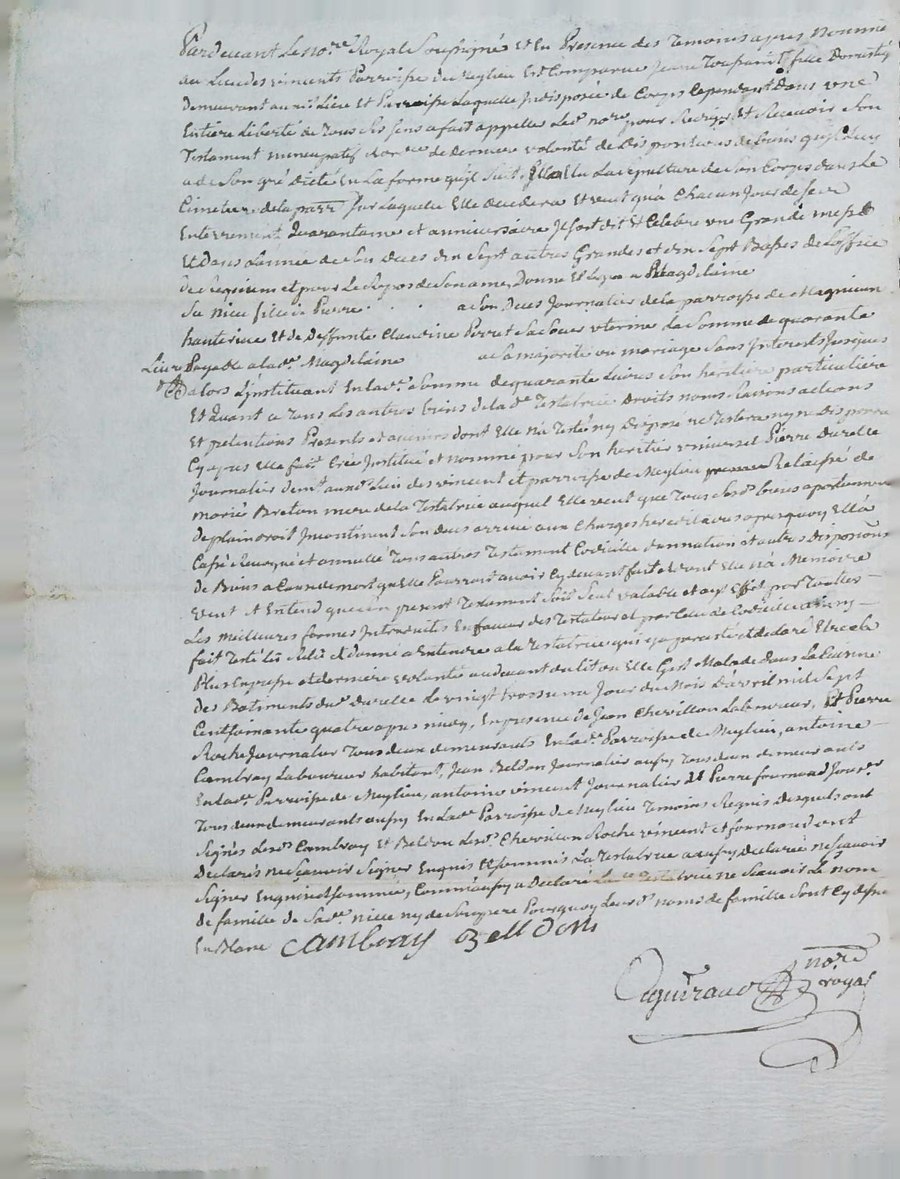 Pardevant Le no.re Royal Soussigné et En Presence des Temoins apres Nommés
au Lieu des vincents Parroisse de Meylieu Est Comparue Jeane Toussaint fille Domestiq
demeurant aud.t Lieu et Parroisse Laquelle Indisposée de Corps Cependant Dans une
Entiere Liberté de Tous Ses Sens a fait appeller Led. no.re pour Rediger Et Recevoir Son
Testament nuncupatif et ord.ce de derniere volonté de Disposition de biens quelle
a de Son gré Dicté En La forme quil Suit. Elle Elu La Sepulture de Son Corps dans Le
Cimetiere de la parr. Sur Laquelle Elle decedera et veut quà Chacun Jour de Son
Enterrement, quarantaine et anniversaire Il Soit dit Et Celebré une Grande messe
Et Dans Lannée de Son deces dix Sept autres Grandes et dix Sept Basses de L'office
de requiem et pour Le Repos de Son ame, Donne Et Legue a Magdelaine
Sa Niece fille a Pierre . . . a Son deces Journalier de la parroisse de Magnieu
hauterive Et de Deffunte Claudine Perret Sa Soeur uterine La Somme de quarante
Livres Payable a lad.e Magdelaine a Sa majorité ou mariage Sans Interests Jusques
alors L'instituant En lad.e Somme de quarante Livres Son heritiere particuliere
Et Quant a Tous Les autres biens de la d.e Testatrice Droits noms Raisons actions
Et pretentions Presents et avenirs dont Elle n'a Testé ny Disposé ne Testera ny ne Disposera
Cy apres Elle fait Crée Institue et nomme pour Son heritier universel Pierre Durelle
Journalier dem.t aux d. Lieu des vincent et parroisse de Meylieu Relaissé de
marie Breton mere de la Testatrice auquel Elle veut que Tous Sesd. biens apartiennent
de plain droit Incontinent Son deces arrivé aux Charges hereditaires apresquoy Ell'a
Cassé Revoqué et annullé Tous autres Testament Codicille donnation et autres Dispositions
de Biens a Cause de mort quelle Pourroit avoir Cy devant fait et dont Elle n'a Memoire
veut Et Entend que Son present Testament Soit Seul valable et ayt Effet par Toutes
Les meilleures formes Introduites En faveur des Testateurs et par Celui de Codicille ainsy
fait Testé Lû Relû Et donné a Entendre a la Testatrice qui y a persisté et declaré Etre Sa
Plus Expresse et derniere volonté au devant du lit ou Elle Gist Malade dans La Cuisine
des Batiments du d. Durelle Le vingt troisieme Jour du Mois D'avril mil Sept
Cent Soixante quatre apres midy, En presence de Jean Chevillon Laboureur, Et Pierre
Roche Journalier Tous deux demeurants En lad.e Parroisse de Meylieu, antoine
Cambray Laboureur habitant, Jean Beldon Journalier aussy Tous deux demeurants
En lad.e Parroisse de Meylieu, antoine vincent Journalier Et Pierre fournand Jour.er
Tous deux demeurants aussy En lad.e Parroisse de Meylieu Temoins Requis desquels ont
Signés Lesd. Cambray Et Beldon Lesd. Chevillon Roche vincent et fournand ont
Declarés ne Scavoir Signer Enquis Et Sommés La Testatrice a aussy Declaré ne Scavoir
Signer Enquise et Sommée, Comm'aussy a Declaré Lad.e Testatrice ne Scavoir Le nom
de famille de Sad.e niece ny de Son pere Pourquoy Leursd. noms de famille Sont Cy dessus
En Blanc cambray Belldon
no.re
royal